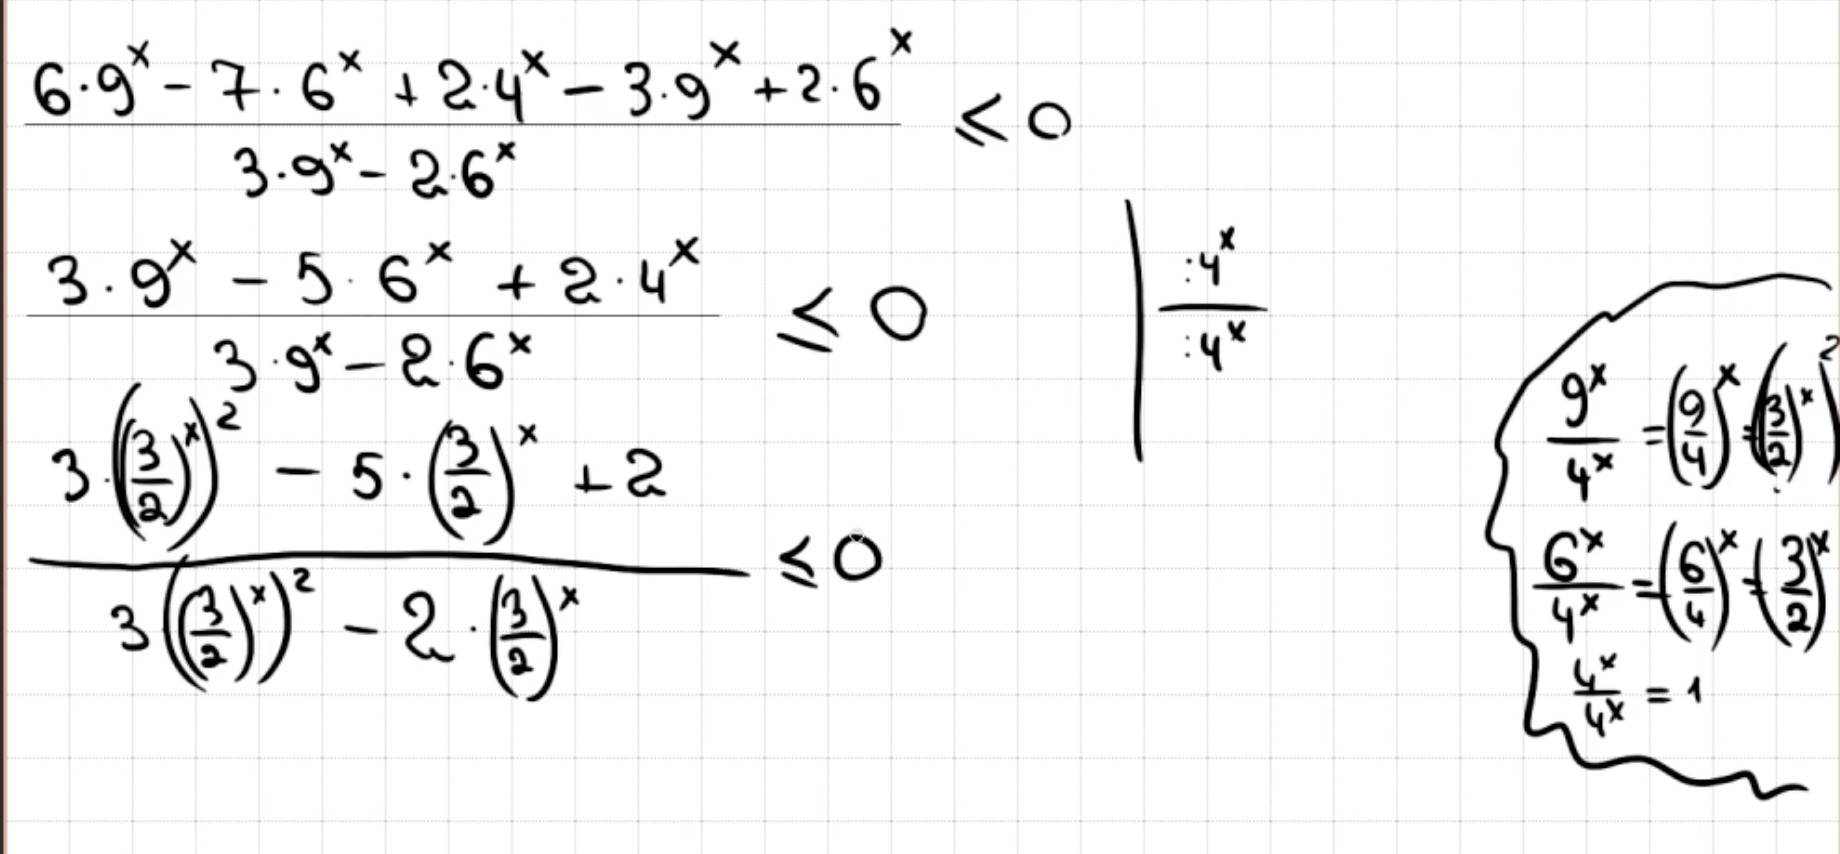 (6·9^x − 7·6^x + 2·4^x − 3·9^x + 2·6^x) / (3·9^x − 2·6^x) ⩽ 0
(3·9^x − 5·6^x + 2·4^x) / (3·9^x − 2·6^x) ⩽ 0 | :4^x / :4^x
(3·((3/2)^x)^2 − 5·(3/2)^x + 2) / (3((3/2)^x)^2 − 2·(3/2)^x) ⩽ 0
9^x/4^x = (9/4)^x = ((3/2)^x)^2
6^x/4^x = (6/4)^x = (3/2)^x
4^x/4^x = 1